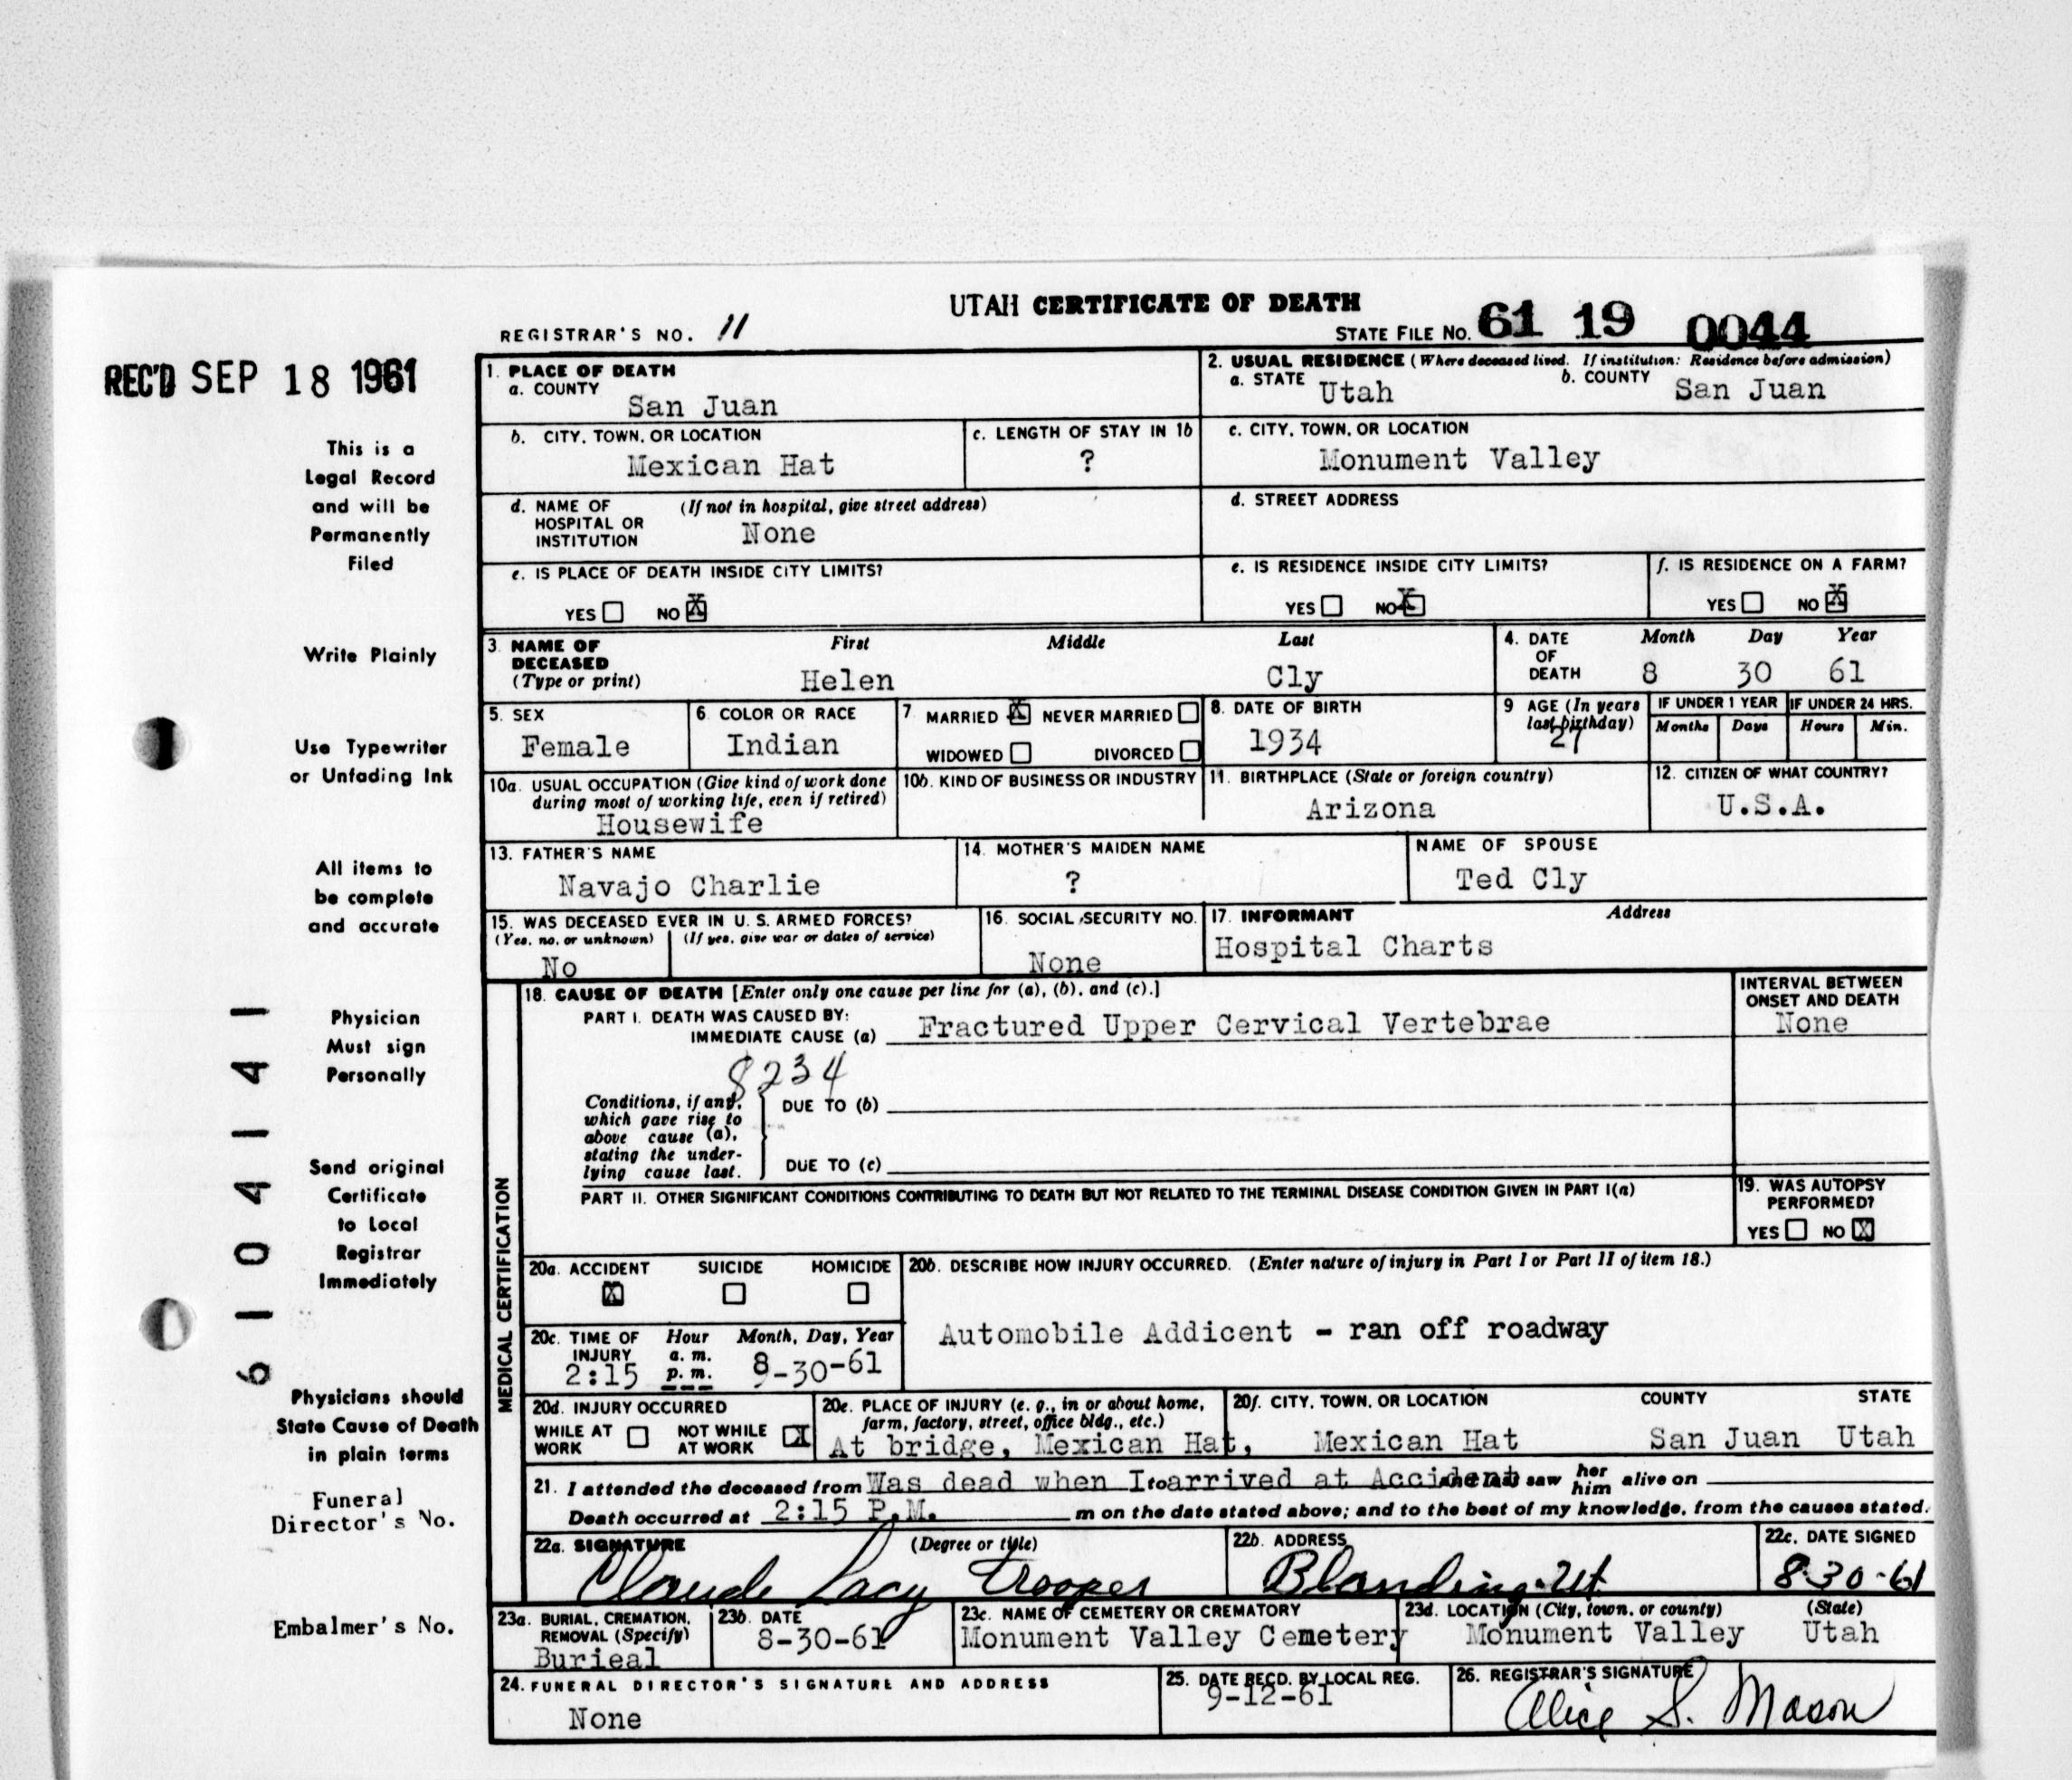 UTAH CERTIFICATE OF DEATH
REGISTRAR'S NO. 11
STATE FILE No. 61 19 0044
REC'D SEP 18 1961
This is a
Legal Record
and will be
Permanently
Filed
Write Plainly
Use Typewriter
or Unfading Ink
All items to
be complete
and accurate
Physician
Must sign
Personally
Send original
Certificate
to Local
Registrar
Immediately
Physicians should
State Cause of Death
in plain terms
Funeral
Director's No.
Embalmer's No.
6104141
1. PLACE OF DEATH
a. COUNTY
San Juan
2. USUAL RESIDENCE (Where deceased lived. If institution: Residence before admission)
a. STATE Utah b. COUNTY San Juan
b. CITY, TOWN, OR LOCATION
Mexican Hat
c. LENGTH OF STAY IN 1b
?
c. CITY, TOWN, OR LOCATION
Monument Valley
d. NAME OF HOSPITAL OR INSTITUTION (If not in hospital, give street address)
None
d. STREET ADDRESS
e. IS PLACE OF DEATH INSIDE CITY LIMITS?
YES NO X
e. IS RESIDENCE INSIDE CITY LIMITS?
YES NO X
f. IS RESIDENCE ON A FARM?
YES NO X
3. NAME OF DECEASED (Type or print)
First Middle Last
Helen Cly
4. DATE OF DEATH
Month Day Year
8 30 61
5. SEX
Female
6. COLOR OR RACE
Indian
7. MARRIED X NEVER MARRIED
WIDOWED DIVORCED
8. DATE OF BIRTH
1934
9 AGE (In years last birthday)
27
IF UNDER 1 YEAR
Months Days
IF UNDER 24 HRS.
Hours Min.
10a. USUAL OCCUPATION (Give kind of work done during most of working life, even if retired)
Housewife
10b. KIND OF BUSINESS OR INDUSTRY
11. BIRTHPLACE (State or foreign country)
Arizona
12. CITIZEN OF WHAT COUNTRY?
U.S.A.
13. FATHER'S NAME
Navajo Charlie
14. MOTHER'S MAIDEN NAME
?
NAME OF SPOUSE
Ted Cly
15. WAS DECEASED EVER IN U. S. ARMED FORCES?
(Yes, no, or unknown) (If yes, give war or dates of service)
No
16. SOCIAL SECURITY NO.
None
17. INFORMANT Address
Hospital Charts
MEDICAL CERTIFICATION
18. CAUSE OF DEATH [Enter only one cause per line for (a), (b), and (c).]
PART I. DEATH WAS CAUSED BY:
IMMEDIATE CAUSE (a) Fractured Upper Cervical Vertebrae
INTERVAL BETWEEN ONSET AND DEATH
None
8234
Conditions, if any, which gave rise to above cause (a), stating the underlying cause last.
DUE TO (b)
DUE TO (c)
PART II. OTHER SIGNIFICANT CONDITIONS CONTRIBUTING TO DEATH BUT NOT RELATED TO THE TERMINAL DISEASE CONDITION GIVEN IN PART I(a)
19. WAS AUTOPSY PERFORMED?
YES NO X
20a. ACCIDENT SUICIDE HOMICIDE
X
20b. DESCRIBE HOW INJURY OCCURRED. (Enter nature of injury in Part I or Part II of item 18.)
Automobile Addicent - ran off roadway
20c. TIME OF INJURY Hour Month, Day, Year
a. m.
2:15 p. m. 8-30-61
20d. INJURY OCCURRED
WHILE AT WORK NOT WHILE AT WORK X
20e. PLACE OF INJURY (e. g., in or about home, farm, factory, street, office bldg., etc.)
At bridge, Mexican Hat,
20f. CITY, TOWN, OR LOCATION COUNTY STATE
Mexican Hat San Juan Utah
21. I attended the deceased from Was dead when I to arrived at Accident and last saw her him alive on
Death occurred at 2:15 P.M. m on the date stated above; and to the best of my knowledge, from the causes stated.
22a. SIGNATURE (Degree or title)
Claude Lacy Trooper
22b. ADDRESS
Blanding, Ut
22c. DATE SIGNED
8-30-61
23a. BURIAL, CREMATION, REMOVAL (Specify)
Burieal
23b. DATE
8-30-61
23c. NAME OF CEMETERY OR CREMATORY
Monument Valley Cemetery
23d. LOCATION (City, town, or county) (State)
Monument Valley Utah
24. FUNERAL DIRECTOR'S SIGNATURE AND ADDRESS
None
25. DATE RECD. BY LOCAL REG.
9-12-61
26. REGISTRAR'S SIGNATURE
Alice S. Mason